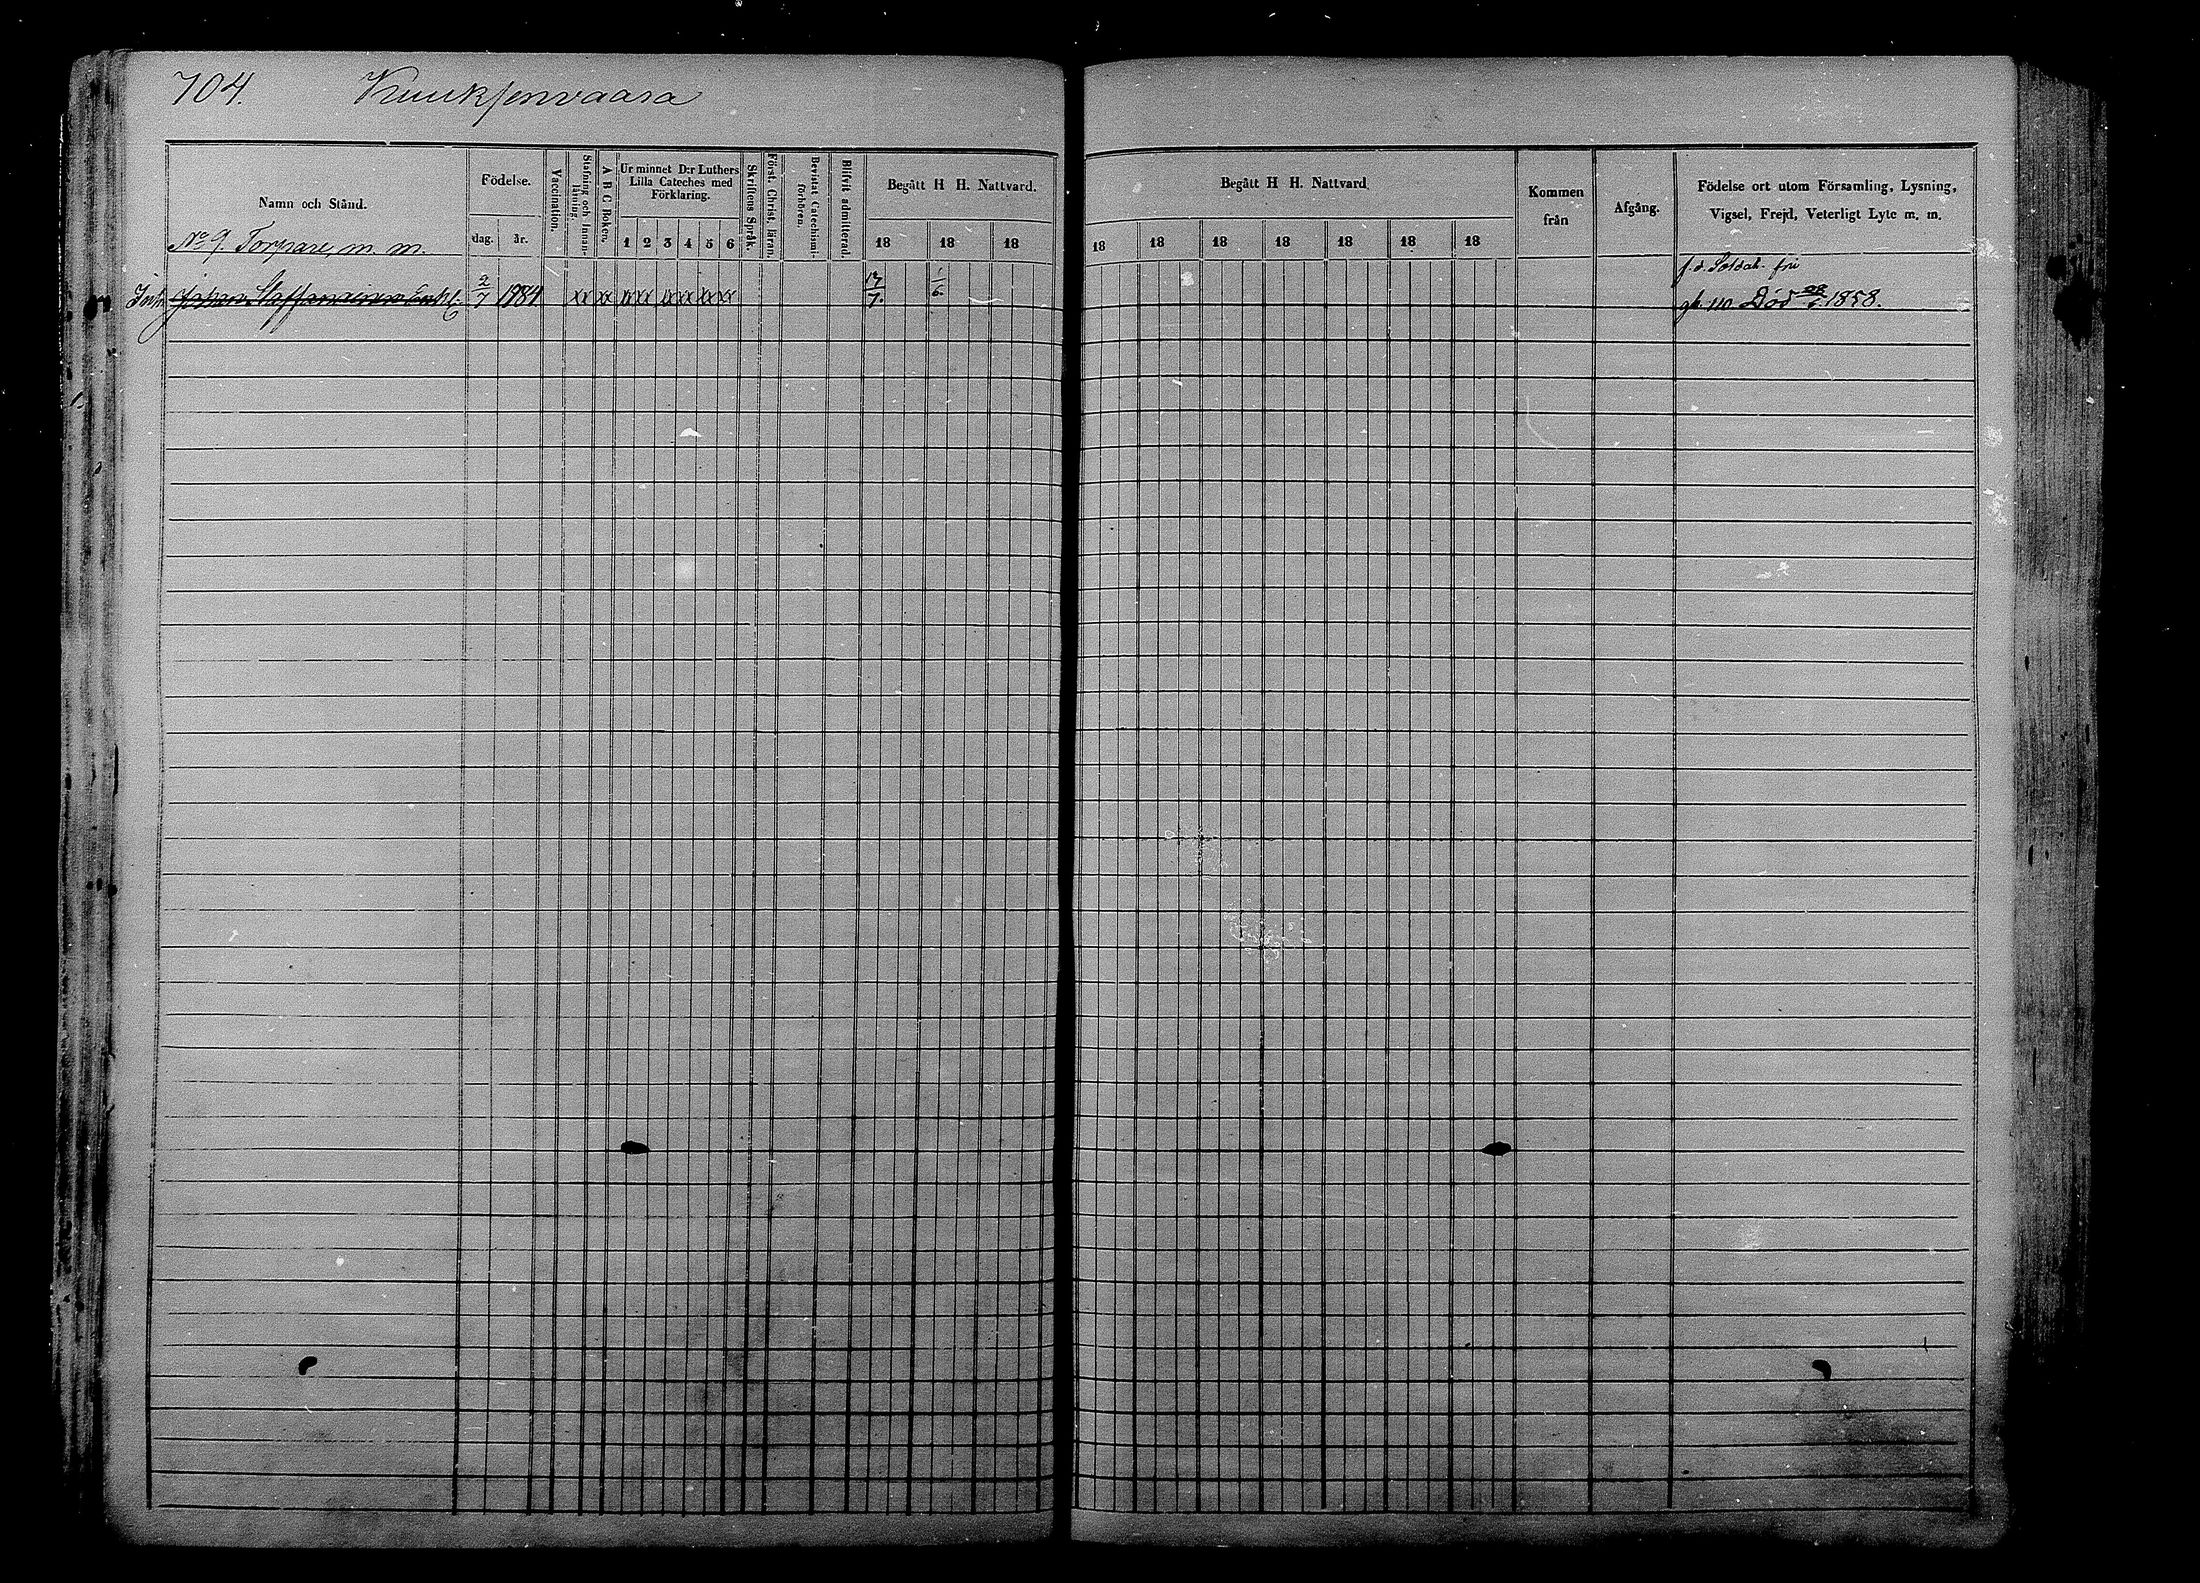 704. Kuuksenvaara
Namn och Stånd.
Födelse.
dag. år.
Vaccination.
Stafning och Innan-
läsning.
A B C Boken.
Ur minnet D:r Luthers
Lilla Cateches med
Förklaring.
1 2 3 4 5 6
Skriftens Språk.
Först. Christ. läran.
Bevistat Catechismi-
förhören.
Blifvit admitterad.
Begått H H. Nattvard.
18 18 18
Begått H H. Nattvard.
18 18 18 18 18 18 18
Kommen
från
Afgång.
Födelse ort utom Församling, Lysning,
Vigsel, Frejd, Veterligt Lyte m. m.
No 9 Torpare, m. m.
f. d. Soldat. fri
Inh. Johan Staffansson 2/7 1784 xx xx xx xx xx xx xx xx 17/7. 1/6. Död 1858.